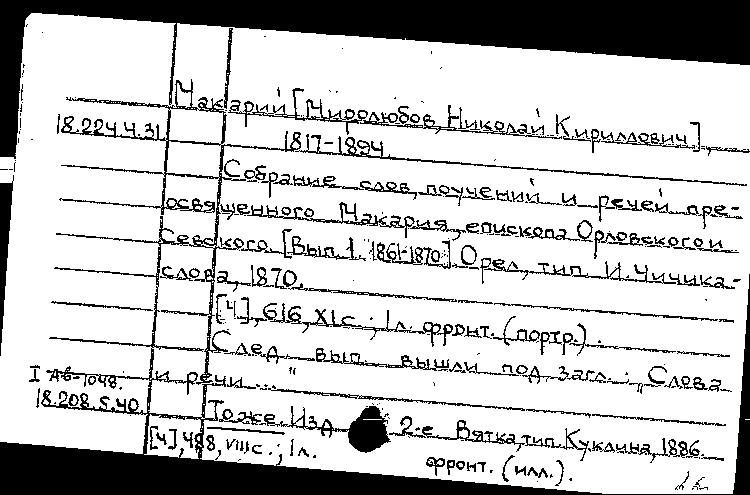 Макарий [Миролюбов, Николай Кириллович],
18.224.4.31. 1817-1894.
Собрание слов, поучений и речей пре-
освященного Макария, епископа Орловского и
Севского. [Вып. 1. 1861-1870] Орел, тип. И. Чичика-
слова, 1870.
[4], 616, XI с.; 1 л. фронт. (портр.).
След. вып. вышли под загл.: „Слова
I А6-1048. и речи ..."
18.208.5.40. То же. Изд 2-е Вятка, тип. Куклина, 1886.
[4], 488, VIII с.; 1 л. фронт. (илл.).